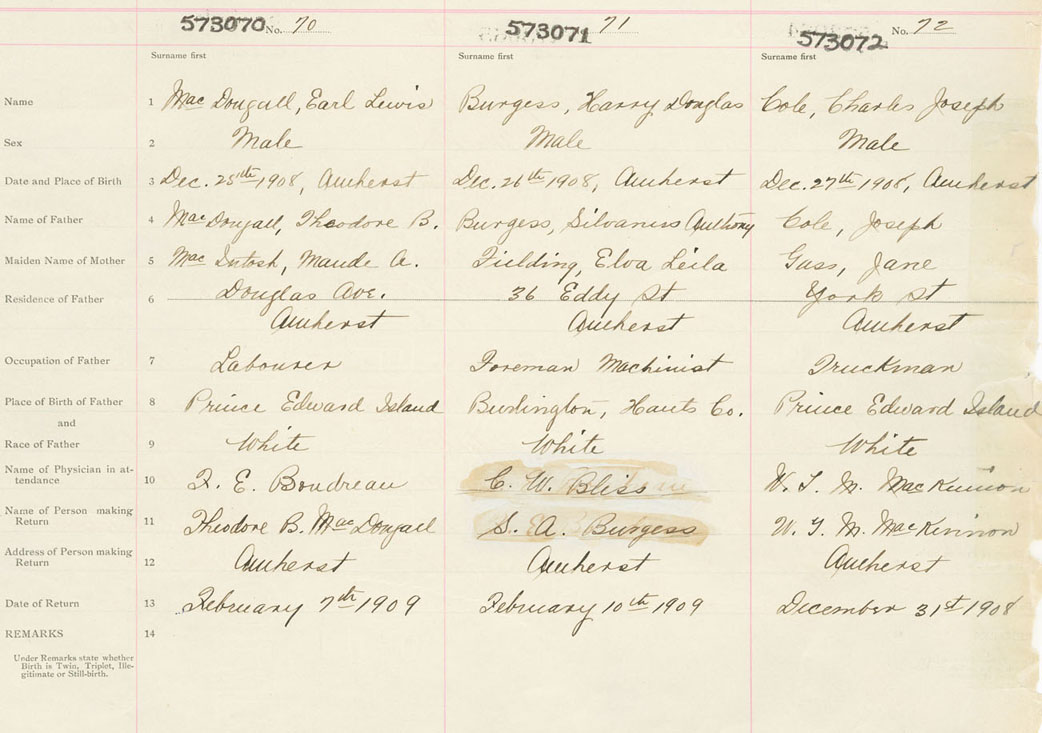 573070 No. 70 573071 71 573072 No. 72
Surname first Surname first Surname first
Name 1 MacDougall, Earl Lewis Burgess, Harry Douglas Cole, Charles Joseph
Sex 2 Male Male Male
Date and Place of Birth 3 Dec. 25th 1908, Amherst Dec. 26th 1908, Amherst Dec. 27th 1908, Amherst
Name of Father 4 MacDougall, Theodore B. Burgess, Silvanus Anthony Cole, Joseph
Maiden Name of Mother 5 MacIntosh, Maude A. Fielding, Elva Leila Gass, Jane
Residence of Father 6 Douglas Ave. 36 Eddy St York St
Amherst Amherst Amherst
Occupation of Father 7 Labourer Foreman Machinist Truckman
Place of Birth of Father 8 Prince Edward Island Burlington, Hants Co. Prince Edward Island
and
Race of Father 9 White White White
Name of Physician in at-
tendance 10 F. E. Boudreau C. W. Bliss W. T. M. MacKinnon
Name of Person making
Return 11 Theodore B. MacDougall S. A. Burgess W. T. M. MacKinnon
Address of Person making
Return 12 Amherst Amherst Amherst
Date of Return 13 February 7th 1909 February 10th 1909 December 31st 1908
REMARKS 14
Under Remarks state whether
Birth is Twin, Triplet, Ille-
gitimate or Still-birth.